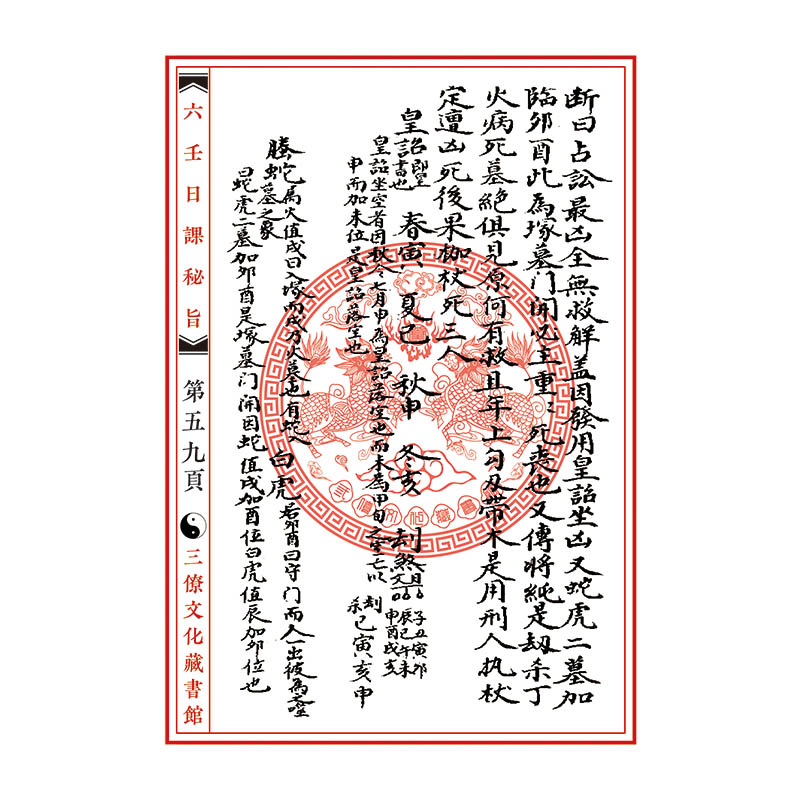 断曰占訟最凶全無救解盖因發用皇詔坐凶又蛇虎二墓加
臨卯酉此為塚墓门開必主重〻死喪也又傳將純是刼杀丁
火病死墓絶俱見原何有救且年上勾刄帶木是用刑人执杖
定遭凶死後果枷杖死三人
皇詔 即皇書也 春寅 夏己 秋申 冬亥 刦煞 月 子丑寅卯 辰巳午未 申酉戌亥
皇詔坐空者因秋令七月申為皇詔落空也而未為甲旬之空亡以刦杀巳寅亥申
申而加未位是皇詔落空也
螣蛇属火值戌曰入塚而戌乃火墓也有蛇入 白虎 若卯酉曰守门而人一出彼為之噬
蛇墓之象
曰蛇虎二墓加卯酉是塚墓门開因蛇值戌加酉位白虎值辰加卯位也
六壬日課秘旨
第五九頁
三僚文化藏書館